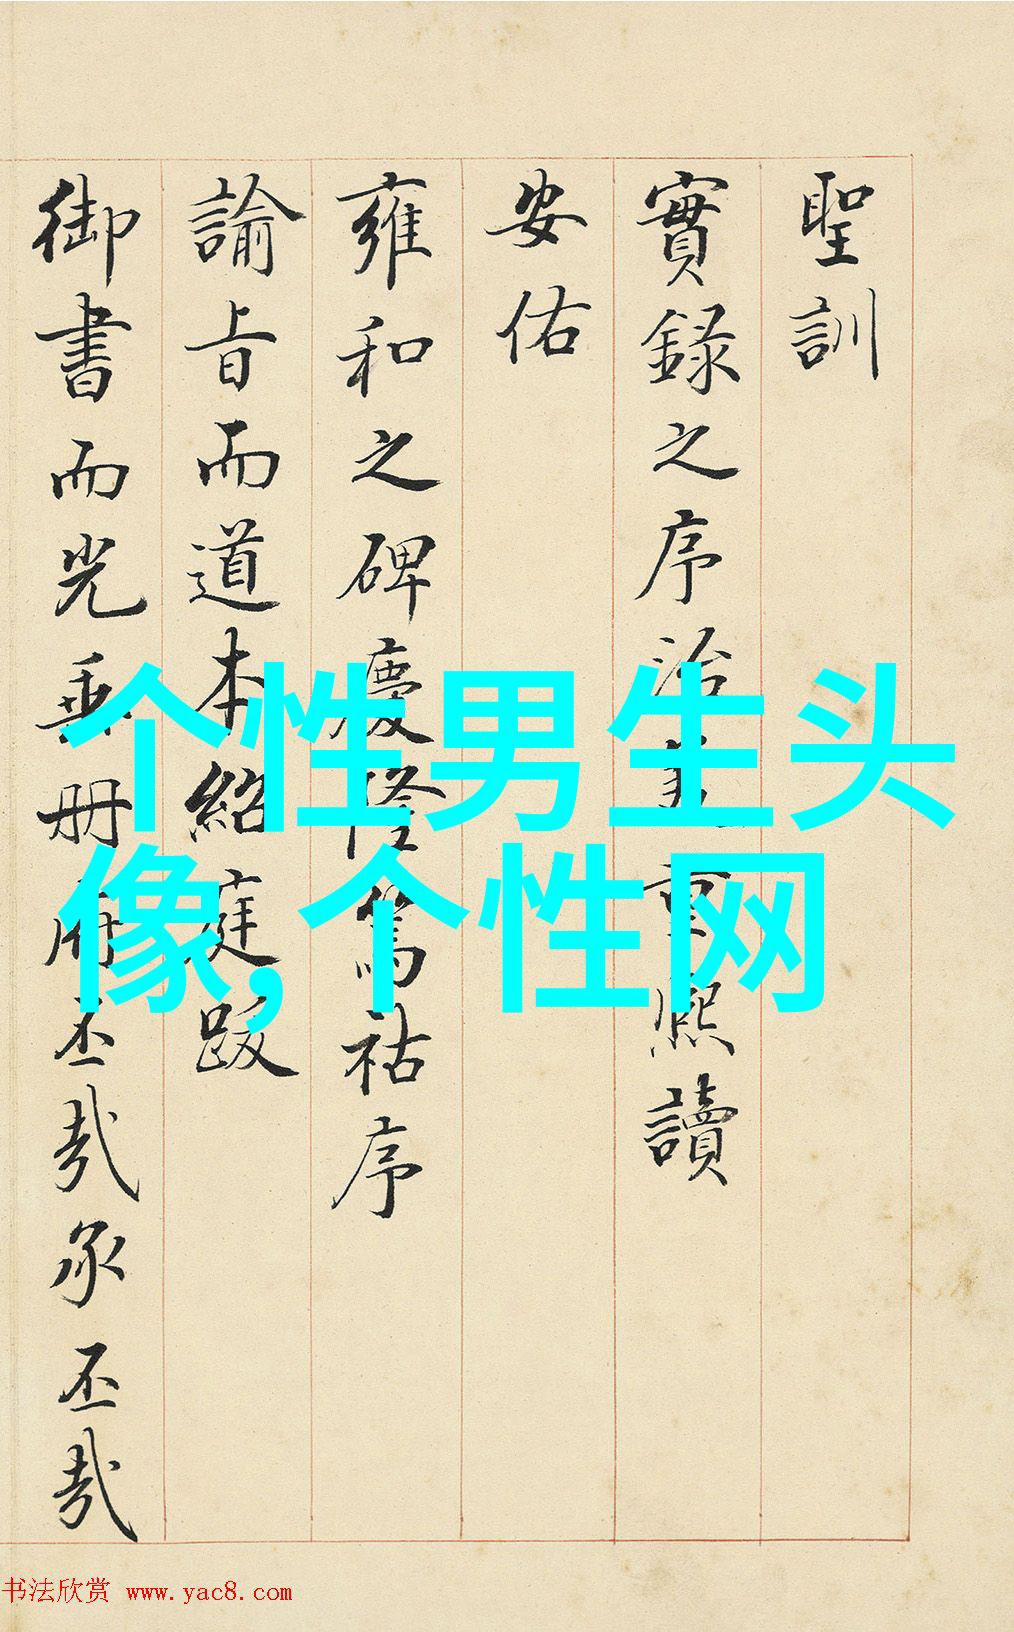 聖訓
實錄之序治重熙讀
安佑
雍和之碑慶隆篤祜序
諭旨而道本紹庭跋
御書而光垂册府丕哉承丕哉
个性男生头
像,个性网
书法欣赏 www.yac8.com